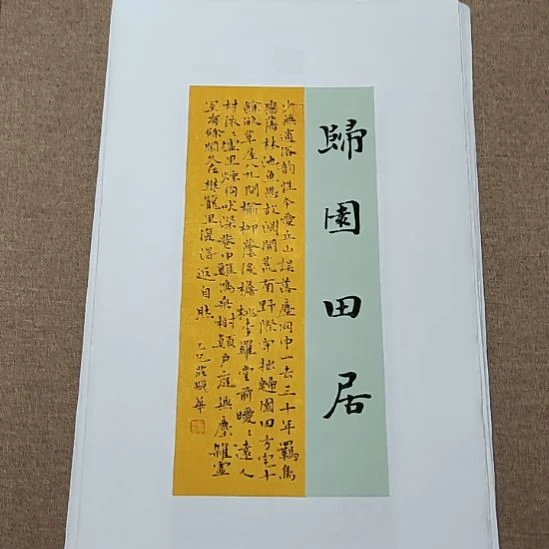 歸園田居
少無適俗韵性本愛丘山誤落塵网中一去三十年羈鳥
戀舊林池魚思故淵開荒南野際守拙歸園田方宅十
餘畝草屋八九間榆柳蔭後檐桃李羅堂前曖〻遠人
村依〻墟里煙狗吠深巷中雞鳴桑樹顛户庭無塵雜虛
室有餘閑久在樊籠里復得返自然
乙巳 華